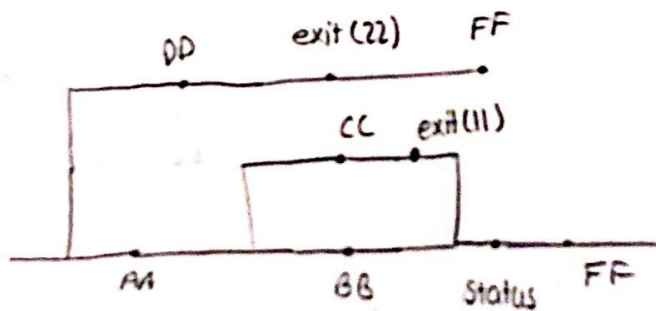 DD exit(22) FF
CC exit(11)
AA BB Status FF